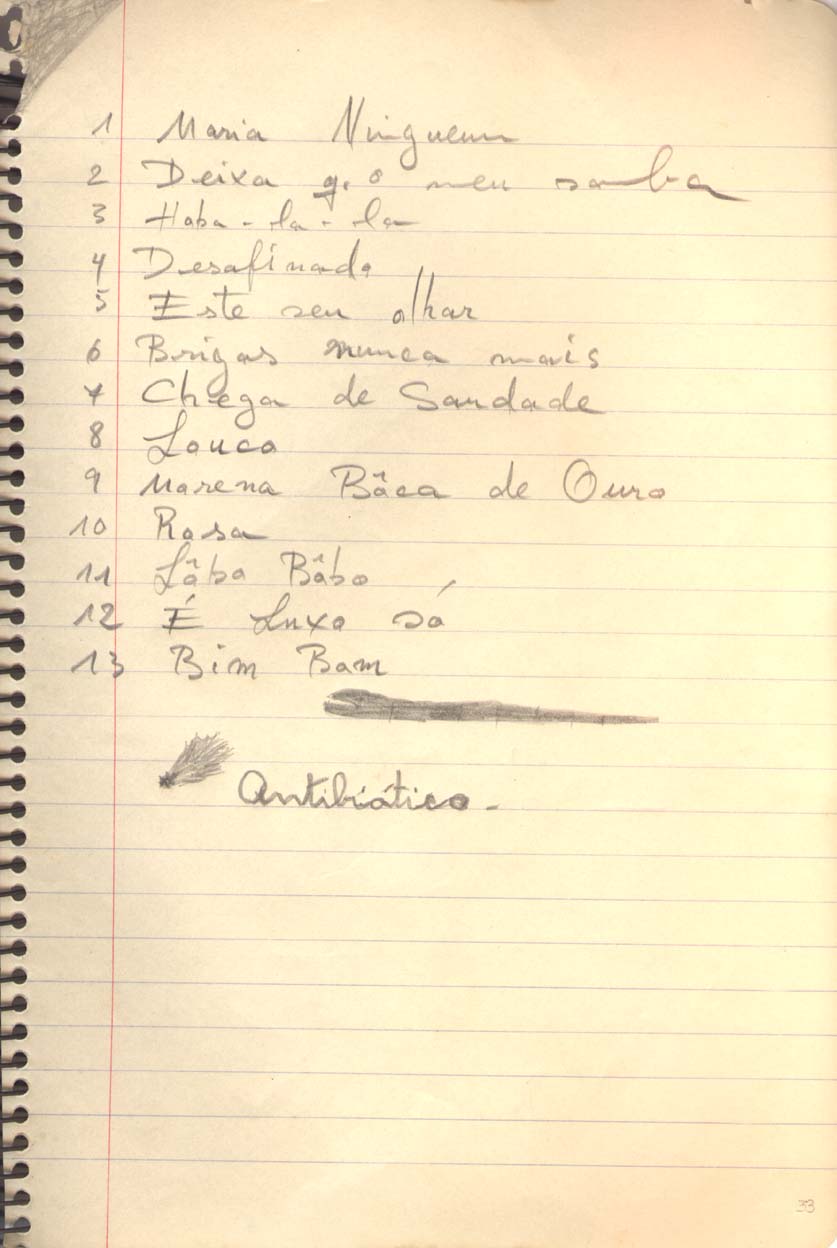 1 Maria Ninguem
2 Deixa q. o meu samba
3 Hoba-la-la
4 Desafinado
5 Este seu olhar
6 Brigas nunca mais
7 Chega de Saudade
8 Louco
9 Morena Bôca de Ouro
10 Rosa
11 Lôbo Bôbo
12 É Luxo só
13 Bim Bom
Antibiótico -
33